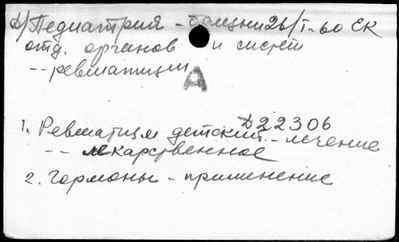 д/Педиатрия - болезни 26/I-60 ЕК
отд. органов и систем
-- ревматизм
А
Д22306
1. Ревматизм детский - лечение
-- лекарственное
2. Гормоны - применение